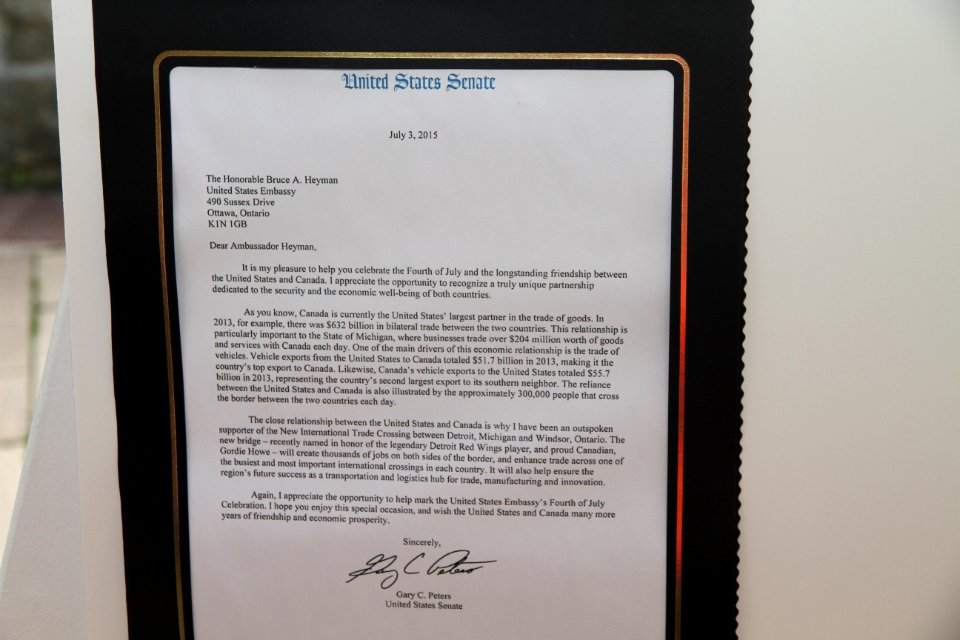 United States Senate
July 3, 2015
The Honorable Bruce A. Heyman
United States Embassy
490 Sussex Drive
Ottawa, Ontario
K1N 1GB
Dear Ambassador Heyman,
It is my pleasure to help you celebrate the Fourth of July and the longstanding friendship between
the United States and Canada. I appreciate the opportunity to recognize a truly unique partnership
dedicated to the security and the economic well-being of both countries.
As you know, Canada is currently the United States' largest partner in the trade of goods. In
2013, for example, there was $632 billion in bilateral trade between the two countries. This relationship is
particularly important to the State of Michigan, where businesses trade over $204 million worth of goods
and services with Canada each day. One of the main drivers of this economic relationship is the trade of
vehicles. Vehicle exports from the United States to Canada totaled $51.7 billion in 2013, making it the
country's top export to Canada. Likewise, Canada's vehicle exports to the United States totaled $55.7
billion in 2013, representing the country's second largest export to its southern neighbor. The reliance
between the United States and Canada is also illustrated by the approximately 300,000 people that cross
the border between the two countries each day.
The close relationship between the United States and Canada is why I have been an outspoken
supporter of the New International Trade Crossing between Detroit, Michigan and Windsor, Ontario. The
new bridge – recently named in honor of the legendary Detroit Red Wings player, and proud Canadian,
Gordie Howe – will create thousands of jobs on both sides of the border, and enhance trade across one of
the busiest and most important international crossings in each country. It will also help ensure the
region's future success as a transportation and logistics hub for trade, manufacturing and innovation.
Again, I appreciate the opportunity to help mark the United States Embassy's Fourth of July
Celebration. I hope you enjoy this special occasion, and wish the United States and Canada many more
years of friendship and economic prosperity.
Sincerely,
Gary C Peters
Gary C. Peters
United States Senate